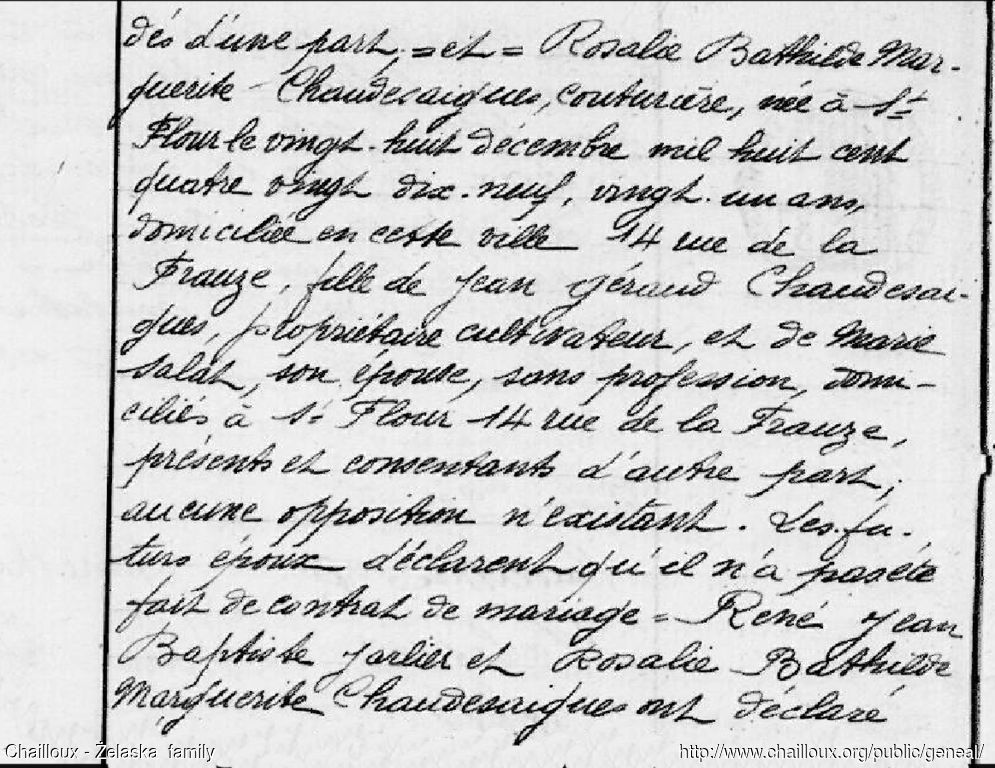 dés d'une part, = et = Rosalie Bathilde Mar-
guerite - Chaudesaigues, couturière, née à St
Flour le vingt-huit décembre mil huit cent
quatre vingt dix-neuf, vingt-un ans,
domiciliée en cette ville 14 rue de la
Frauze, fille de Jean Géraud Chaudesai-
gues, propriétaire cultivateur, et de Marie
Salat, son épouse, sans profession, domi-
ciliés à St Flour 14 rue de la Frauze,
présents et consentants d'autre part,
aucune opposition n'existant. Les fu-
turs époux déclarent qu'il n'a pas été
fait de contrat de mariage = René Jean
Baptiste Jarlier et Rosalie Bathilde
Marguerite Chaudesaigues ont déclaré
Chailloux - Zelaska family
http://www.chailloux.org/public/geneal/